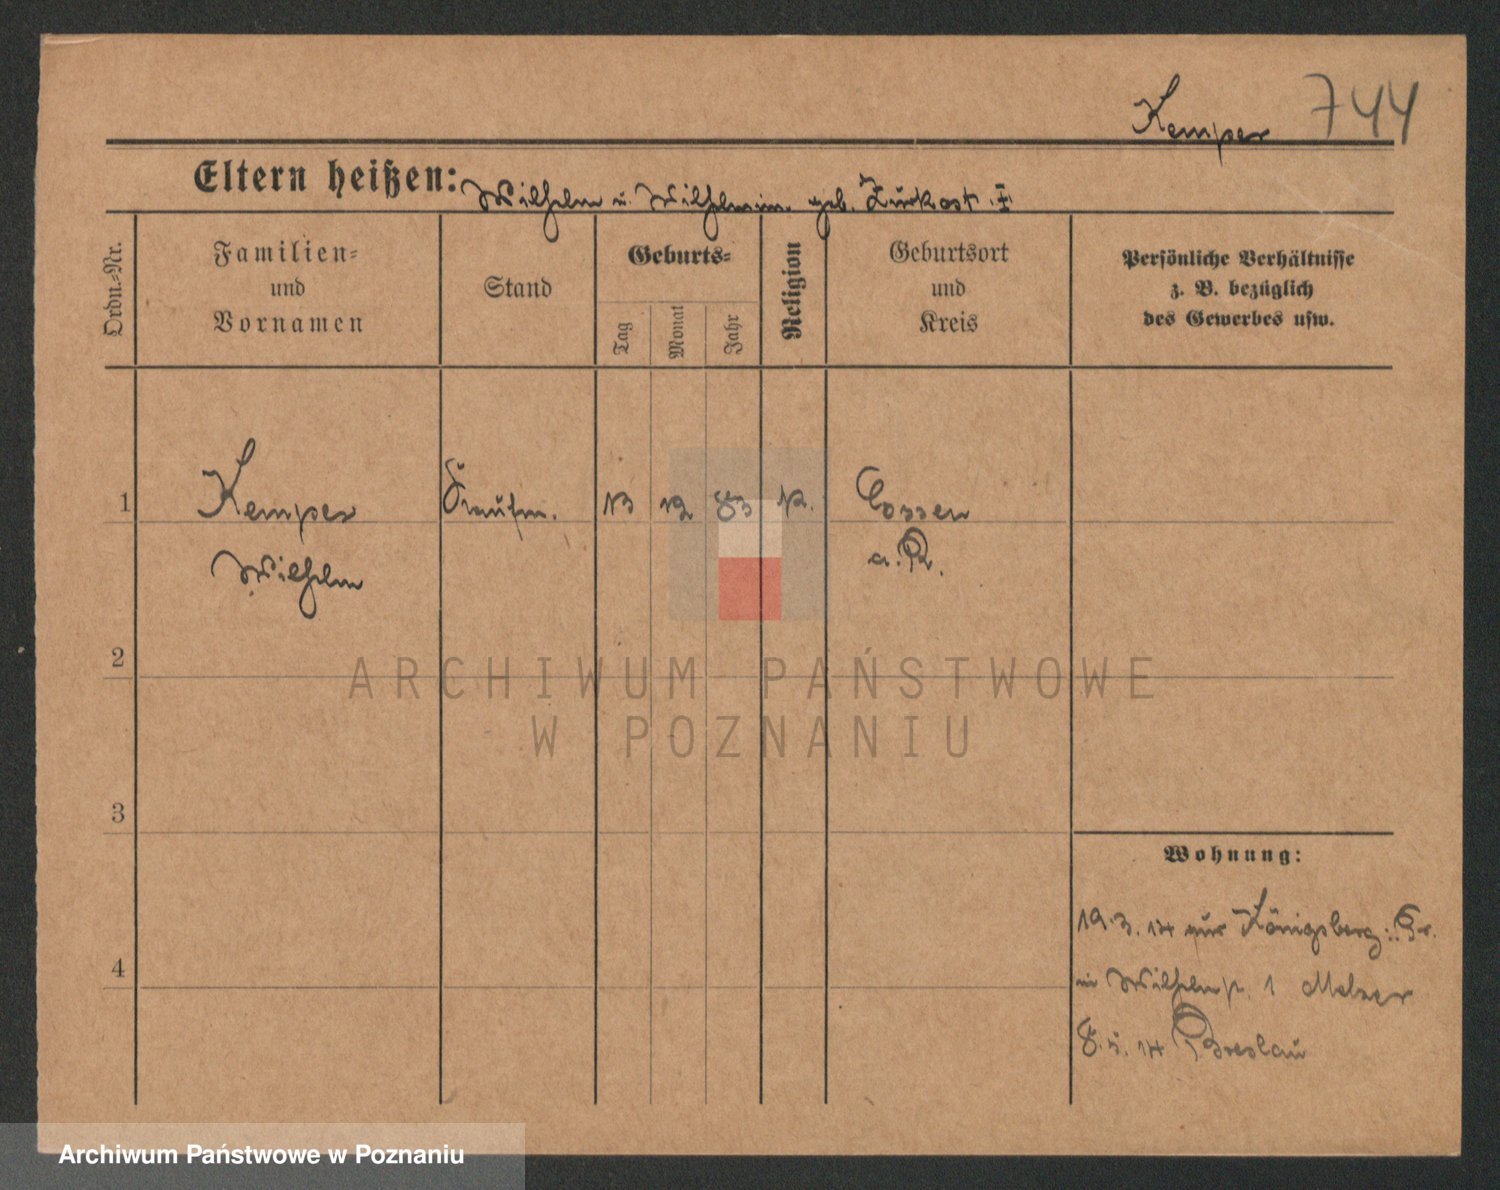 Kemper 744
Eltern heißen: Wilhelm u. Wilhelmin. geb.
Ordn.-Nr.
Familien-
und
Vornamen
Stand
Geburts-
Tag
Monat
Jahr
Religion
Geburtsort
und
Kreis
Persönliche Verhältnisse
z. B. bezüglich
des Gewerbes usw.
1 Kemper Kaufm. 13 12 83 k. Cossen
Wilhelm a. R.
2
3
4
Wohnung:
19.3.14 aus Königsberg i. Pr.
in Wilhelmst. 1 Melzer
8.5.14 Breslau
ARCHIWUM PAŃSTWOWE
W POZNANIU
Archiwum Państwowe w Poznaniu